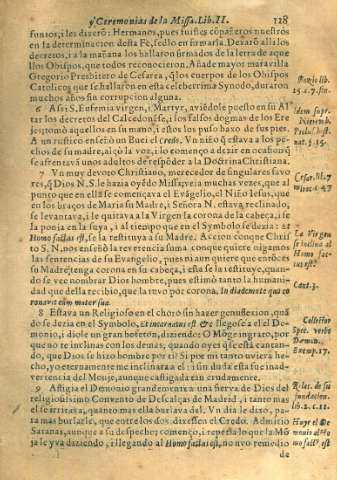 y Ceremonias de la Missa. Lib. II. 128
funtos, i les dixerõ: Hermanos, pues fuistes cõpañeros nuestros
en la determinacion desta Fè, sedlo en firmarla. Dexarõ alli los
decretos, i a la mañana los hallaron firmados de la letra de aque
llos Obispos, que todos reconocieron. Añade mayor maravilla
Gregorio Presbitero de Cesarea, q̃ los cuerpos de los Obispos
Catolicos que se hallaron en esta celeberrima Synodo, duraron
muchos años sin corrupcion alguna.
6 Assi S. Eufemia virgen, i Martyr, aviẽdole puesto en su Al
tar los decretos del Calcedonẽse, i los falsos dogmas de los Ere
jes, tomò aquellos en su mano, i estos los puso baxo de sus pies.
A un rustico enseñò un Buei el credo. Vn niño q̃ estava a los pe-
chos de su madre, alçò la voz, i lo començò a dezir en ocasiõ q̃
se afrentavã unos adultos de respõder a la Doctrina Christiana.
7 Vn muy devoto Christiano, merecedor de singulares favo
res, q̃ Dios N. S. le hazia oyẽdo Missa, veia muchas vezes, que al
punto que en ella se començava el Evãgelio, el Niño Iesus, que
en los braços de Maria su Madre, i Señora N. estava reclinado,
se levantava, i le quitava a la Virgen la corona de la cabeça, i se
la ponia en la suya, i al tiempo que en el Symbolo se dezia: et
Homo factus est, se la restituya a su Madre. Accion conque Chris
to S. N. nos enseñò la reverencia suma conque quiere oigamos
las sentencias de su Evangelio, pues ni aun quiere que entõces
su Madre tenga corona en su cabeça, i esta se la restituye, quan-
do se vee nombrar Dios hombre, pues estimò tanto la humani-
dad que della recibio, que la tuvo por corona. In diademate quo co
ronavit eũm mater sua.
8 Estava un Religioso en el choro sin hazer genuflexion, quã
do se dezia en el Symbolo, et homo factus est &c. llegose a el el De-
monio, i diole un gran bofeton, diziendo: O Mõge ingrato, por
que no te inclinas con los demas, quando oyes q̃ se està cantan-
do, que Dios se hizo hombre por ti? Si por mi tanto uviera he-
cho, yo eternamente me inclinara a el: i sin duda esta fue inad-
vertencia del Mõge, aunque castigada tan crudamente.
9 Afligia el Demonio grandemente a una sierva de Dios del
religiosissimo Convento de Descalças de Madrid, i tanto mas
el se irritava, quanto mas ella burlava del. Vn dia le dixo, pa-
ra mas burlarle, que entre los dos dixessen el Credo. Admitio
Satanas, aunque a su despecho; començò, i repetia lo que la Mõ
ja le yva diziendo, i llegando al Homo factus est, no uvo remedio
de
La Virgen
se inclina al
Homo fac-
tus est.
Cant. 3.